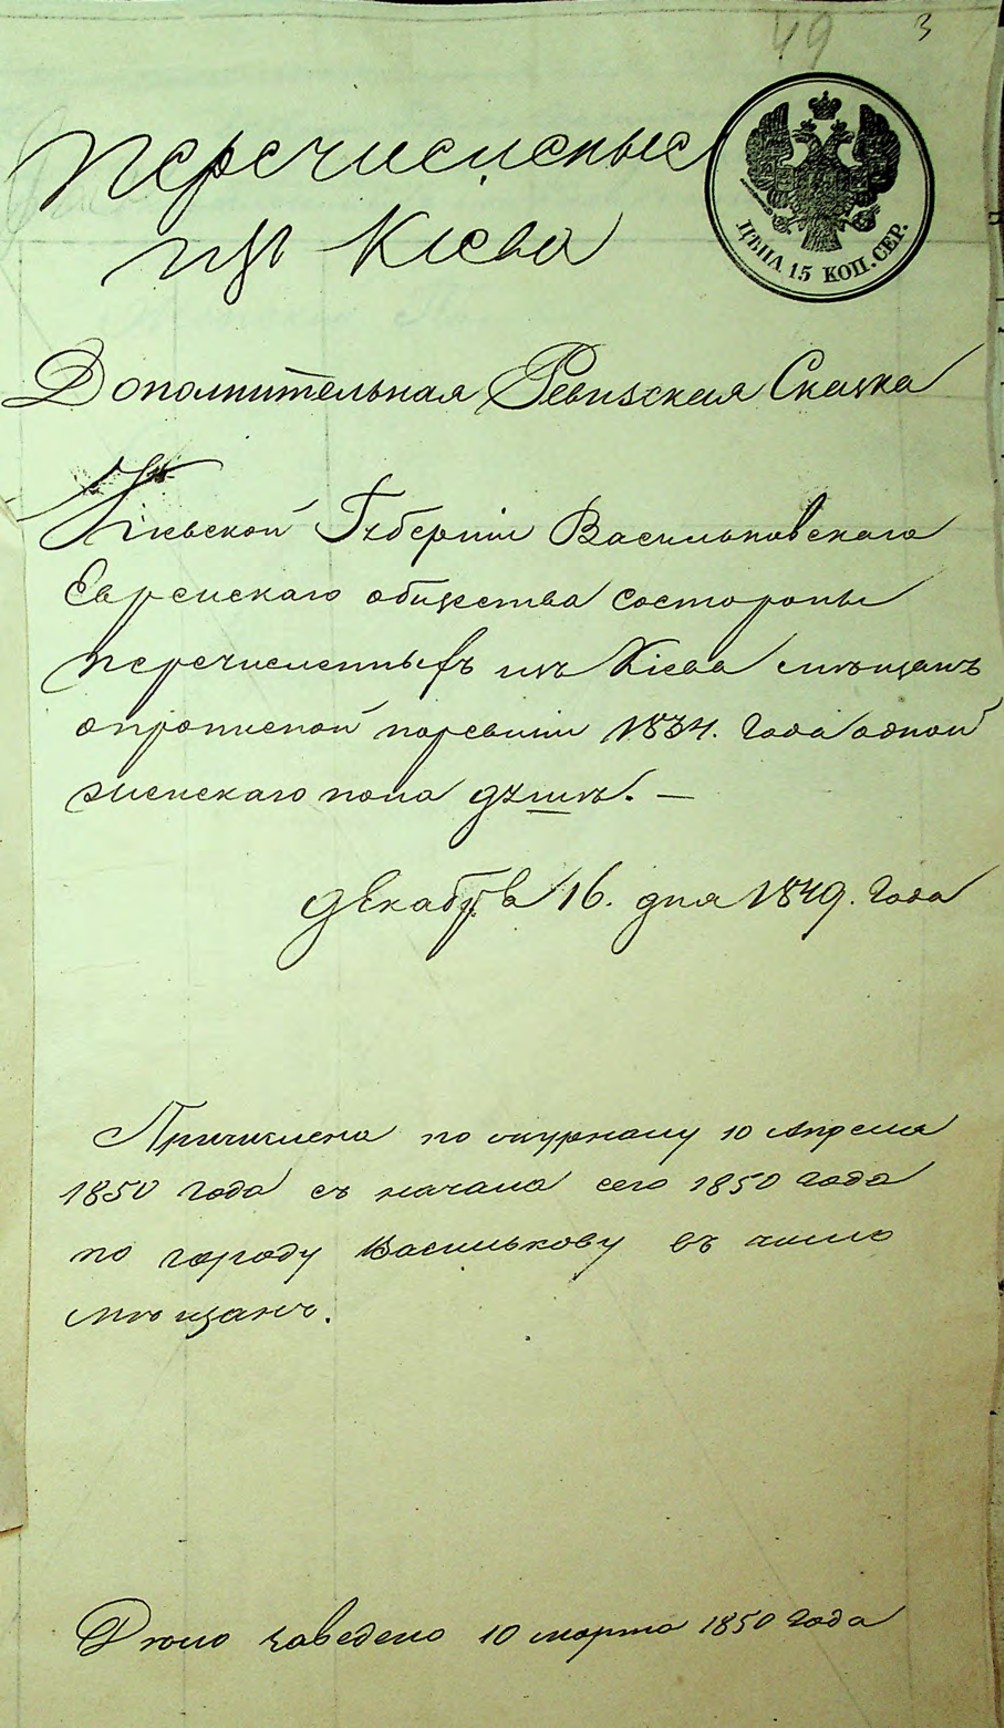 49 3
Перечисленые
изъ Кіева
ЦѢНА 15 КОП. СЕР.
Дополнительная Ревизская Сказка
Кіевской Губерніи Васильковскаго
Еврейскаго общества состороны
перечисленныхъ изъ Кіева мѣщанъ
опрописной поревизіи 1834. Года одной
женскаго пола душѣ. —
Декабря 16. дня 1849. Года
Причислена по журналу 10 Апреля
1850 года съ начала сего 1850 года
по городу Василькову въ число
мѣщанъ.
Дѣло заведено 10 марта 1850 года